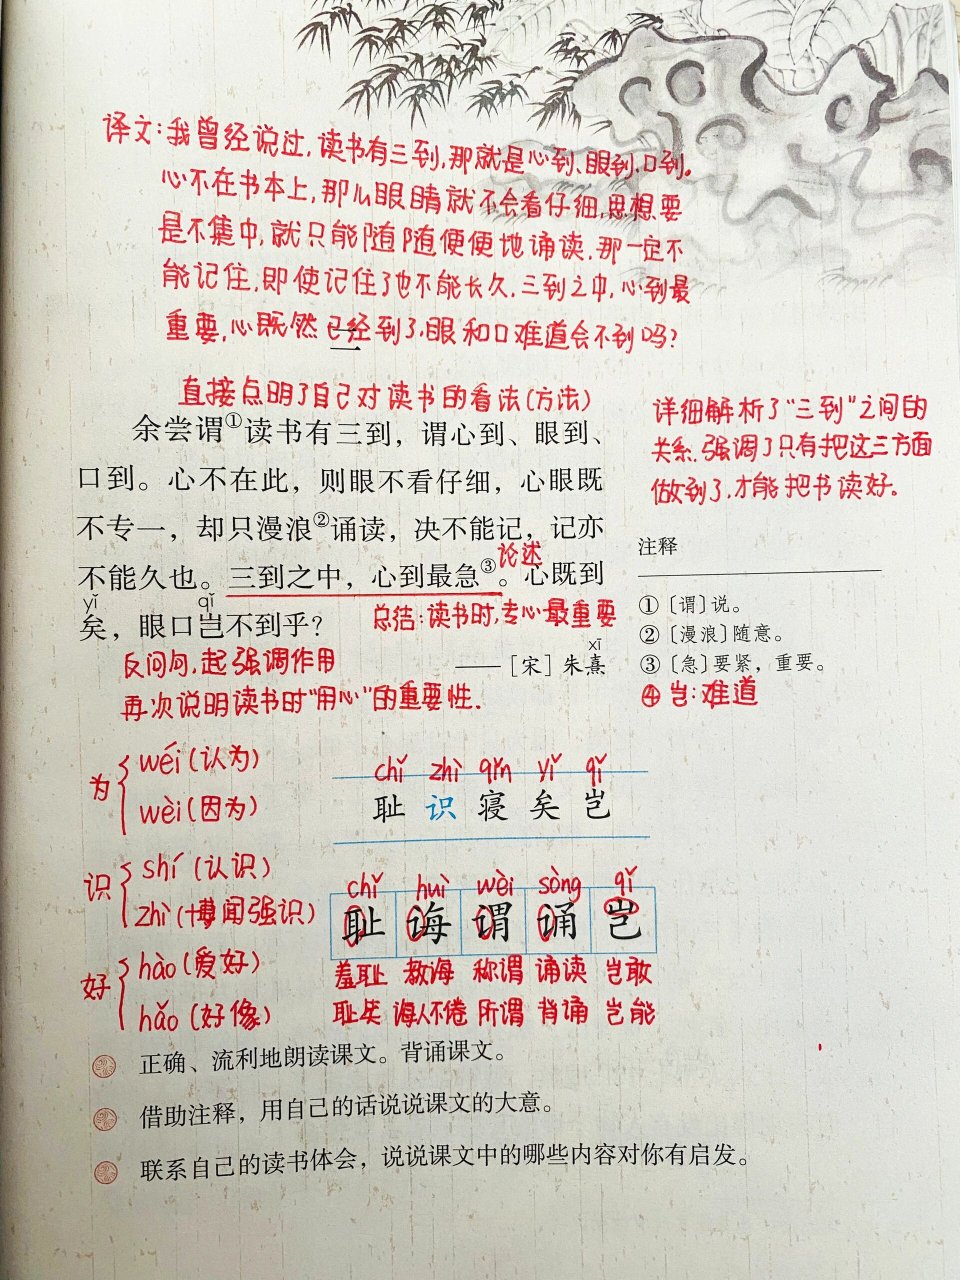 译文:我曾经说过,读书有三到,那就是心到、眼到、口到。
心不在书本上,那么眼睛就不会看仔细,思想要
是不集中,就只能随随便便地诵读,那一定不
能记住,即使记住了也不能长久,三到之中,心到最
重要,心既然已经到了,眼和口难道会不到吗?
二
直接点明了自己对读书的看法(方法)
余尝谓①读书有三到,谓心到、眼到、
口到。心不在此,则眼不看仔细,心眼既
不专一,却只漫浪②诵读,决不能记,记亦
论述
不能久也。三到之中,心到最急③。心既到
yǐ qǐ
矣,眼口岂不到乎?
总结:读书时,专心最重要
反问句,起强调作用
xī
——[宋]朱熹
再次说明读书时"用心"的重要性.
详细解析了"三到"之间的
关系,强调了只有把这三方面
做到了,才能把书读好。
注释
①〔谓〕说。
②〔漫浪〕随意。
③〔急〕要紧,重要。
④岂:难道
为
wéi(认为)
wèi(因为)
识
shí(认识)
zhì(博闻强识)
好
hào(爱好)
hǎo(好像)
chǐ zhì qǐn yǐ qǐ
耻 识 寝 矣 岂
chǐ huì wèi sòng qǐ
耻 诲 谓 诵 岂
羞耻 教诲 称谓 诵读 岂敢
耻笑 诲人不倦 所谓 背诵 岂能
正确、流利地朗读课文。背诵课文。
借助注释,用自己的话说说课文的大意。
联系自己的读书体会,说说课文中的哪些内容对你有启发。